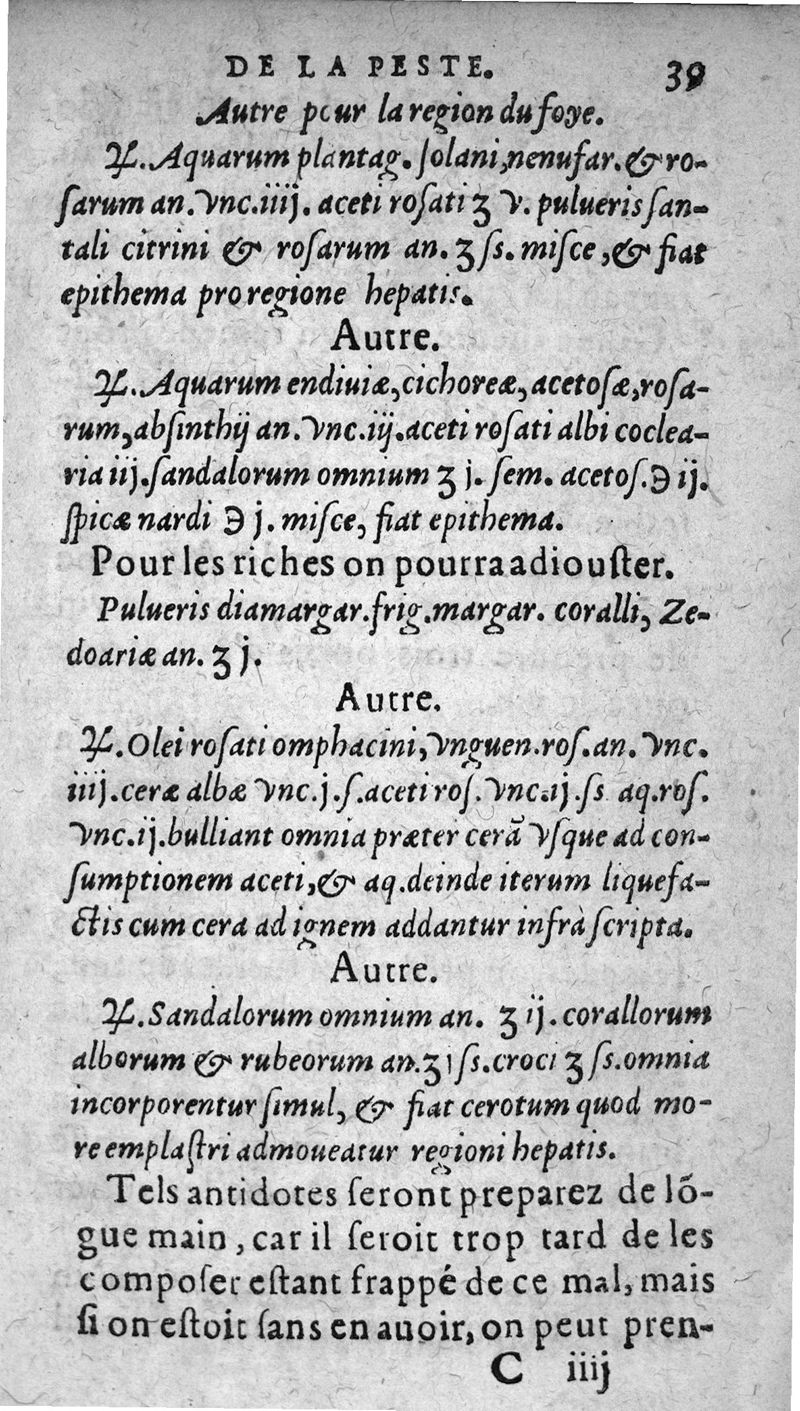 DE LA PESTE. 39
Autre pour la region du foye.
℞. Aquarum plantag. ſolani, nenufar. & ro-
ſarum an. vnc. iiij. aceti roſati ʒ v. pulueris ſan-
tali citrini & roſarum an. ʒ ſs. miſce, & fiat
epithema pro regione hepatis.
Autre.
℞. Aquarum endiuiæ, cichoreæ, acetoſæ, roſa-
rum, abſinthij an. vnc. iij. aceti roſati albi coclea-
ria iij. ſandalorum omnium ʒ j. ſem. acetoſ. ℈ ij.
ſpicæ nardi ℈ j. miſce, fiat epithema.
Pour les riches on pourra adiouſter.
Pulueris diamargar. frig. margar. coralli, Ze-
doariæ an. ʒ j.
Autre.
℞. Olei roſati omphacini, vnguen. roſ. an. vnc.
iiij. ceræ albæ vnc. j. ſ. aceti roſ. vnc. ij. ſs aq. roſ.
vnc. ij. bulliant omnia præter cerã vſque ad con-
ſumptionem aceti, & aq. deinde iterum liquefa-
ctis cum cera ad ignem addantur infrà ſcripta.
Autre.
℞. Sandalorum omnium an. ʒ ij. corallorum
alborum & rubeorum an. ʒ j ſs. croci ʒ ſs. omnia
incorporentur ſimul, & fiat cerotum quod mo-
re emplaſtri admoueatur regioni hepatis.
Tels antidotes ſeront preparez de lõ-
gue main, car il ſeroit trop tard de les
compoſer eſtant frappé de ce mal, mais
ſi on eſtoit ſans en auoir, on peut pren-
C iiij